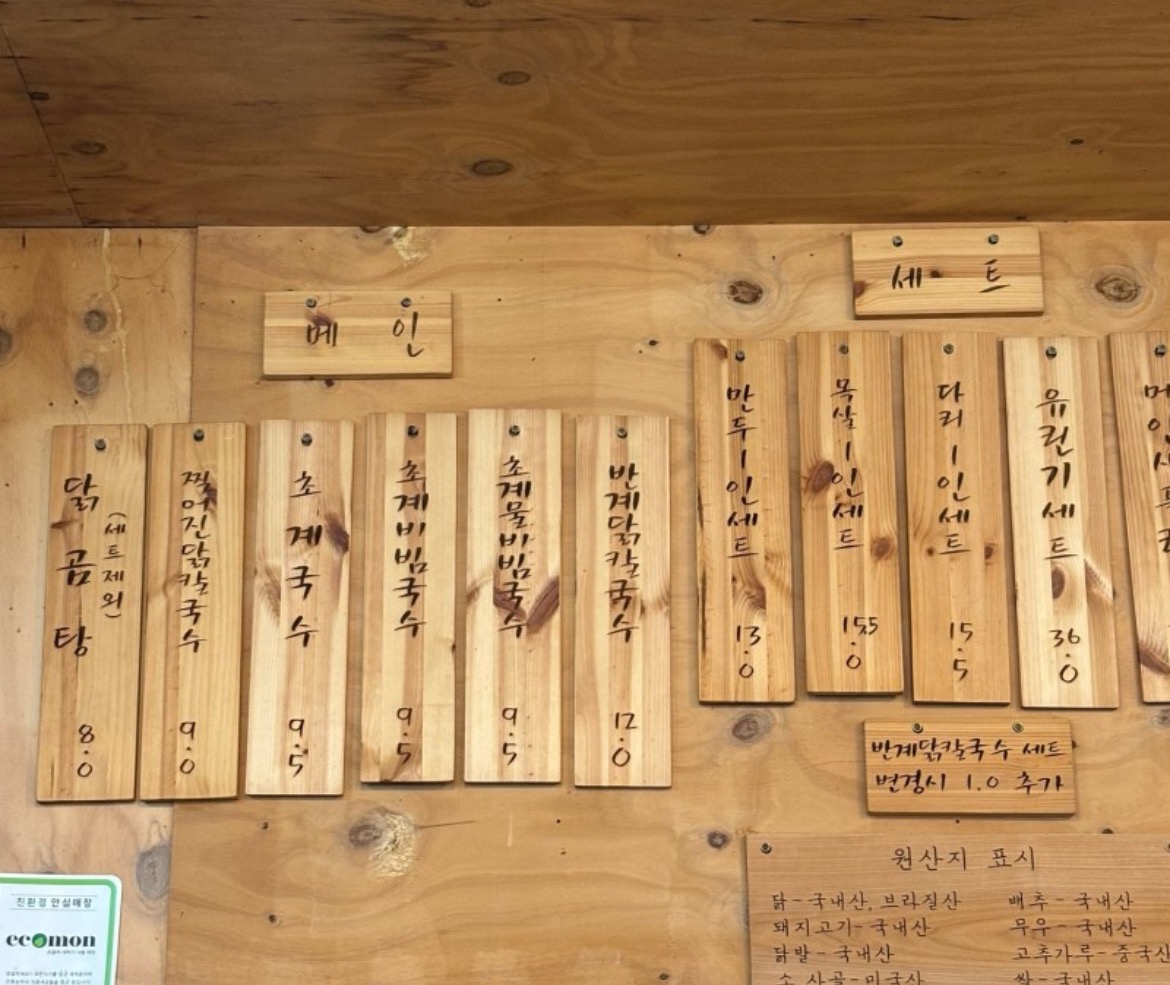 메 인
닭 곰 탕
(세트제외)
8.0
찢어진닭칼국수
9.0
초계국수
9.5
초계비빔국수
9.5
초계물비빔국수
9.5
반계닭칼국수
12.0
세 트
만두1인세트
13.0
목살1인세트
15.5
.0
다리1인세트
15.5
유린기세트
36.0
반계닭칼국수 세트
변경시 1.0 추가
원산지 표시
닭-국내산, 브라질산
배추-국내산
돼지고기-국내산
무우-국내산
닭발-국내산
고추가루-중국산
소 사골-미국산
쌀-국내산
친환경 안심매장
ecomon